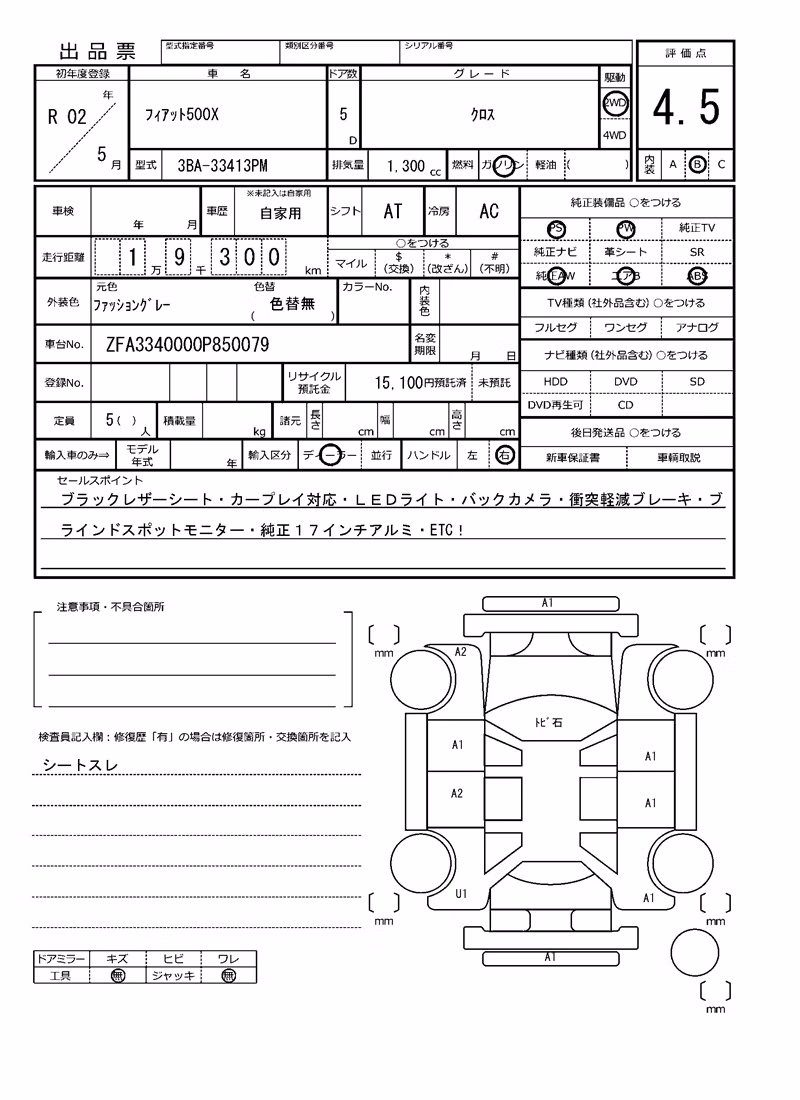 出品票
型式指定番号 類別区分番号 シリアル番号
評価点
4.5
内装 A B C
初年度登録 車名 ドア数 グレード 駆動
R 02 年 5 月 フィアット500X 5 D クロス 2WD
4WD
型式 3BA-33413PM 排気量 1,300 cc 燃料 ガソリン 軽油 ( )
車検 年 月 車歴 ※未記入は自家用 自家用 シフト AT 冷房 AC
走行距離 1 万 9 千 3 0 0 km
○をつける
マイル $ (交換) * (改ざん) # (不明)
外装色 元色 ファッショングレー 色替 ( 色替無 ) カラーNo. 内装色
車台No. ZFA3340000P850079 名変期限 月 日
登録No. リサイクル預託金 15,100円預託済 未預託
定員 5( ) 人 積載量 kg 諸元 長さ cm 幅 cm 高さ cm
輸入車のみ⇒ モデル年式 年 輸入区分 ディーラー 並行 ハンドル 左 右
純正装備品 ○をつける
PS PW 純正TV
純正ナビ 革シート SR
純正AW エアB ABS
TV種類 (社外品含む) ○をつける
フルセグ ワンセグ アナログ
ナビ種類 (社外品含む) ○をつける
HDD DVD SD
DVD再生可 CD
後日発送品 ○をつける
新車保証書 車輌取説
セールスポイント
ブラックレザーシート・カープレイ対応・ＬＥＤライト・バックカメラ・衝突軽減ブレーキ・ブ
ラインドスポットモニター・純正１７インチアルミ・ETC！
注意事項・不具合箇所
検査員記入欄：修復歴「有」の場合は修復箇所・交換箇所を記入
シートスレ
A1
mm
mm
A2
ﾄﾋﾞ石
A1
A1
A2
A1
U1
A1
mm
mm
A1
mm
ドアミラー キズ ヒビ ワレ
工具 無 ジャッキ 無